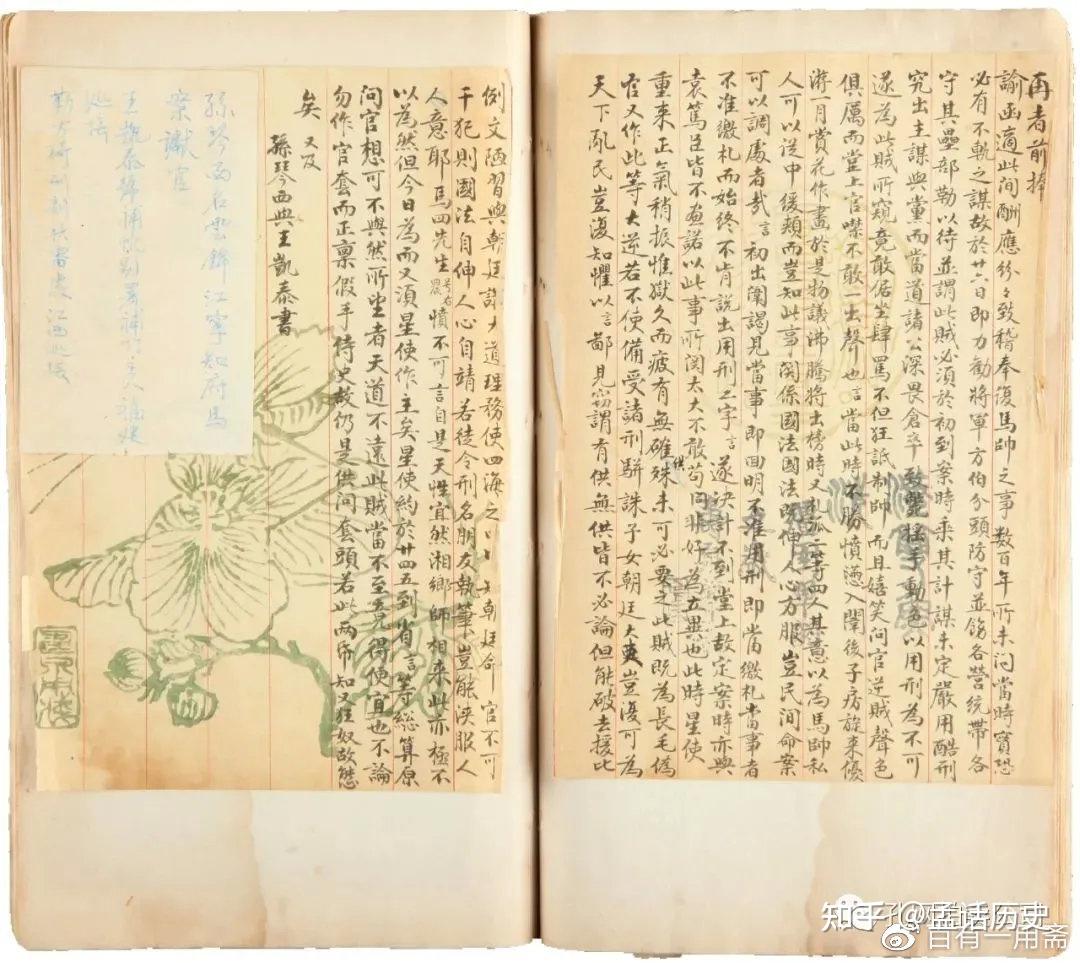 再者前捧
諭函適此间酬應紛々致稽奉復馬帥之事數百年所未闻當時實恐
必有不軌之謀故於廿六日即力勸將軍方伯分頭防守並飭各營統帶各
守其壘部勒以待並謂此賊必須於初到案時乘其計謀未定嚴用酷刑
究出主謀與黨而當道諸公深畏倉卒致斃摇手動色以用刑為不可
遂為此賊所窺竟敢倨坐肆罵不但狂詆制帥而且嬉笑问官逆賊聲色
俱厲而堂上官噤不敢一出聲也言當此時不勝憤懣入闈後子房旋来優
游一月賞花作畫於是物議沸騰將出榜時又札孤二等四人其意以為馬帥私
人可以從中緩頰而豈知此事関係國法國法即伸人心方服豈民间命案
可以調處者哉言初出闈謁見當事即面明不准用刑即當繳札當事者
不准繳札而始終不肯説出用刑二字言遂决計不到堂上故定案時亦與
袁篤臣皆不畫諾以此事所関太大不敢苟同非好為立異也此時星使
重来正氣稍振惟獄久而疲有無確供殊未可必要之此賊既為長毛偽
官又作此等大逆若不使備受諸刑駢誅子女朝廷大吏豈復可為
天下亂民豈復知懼以言鄙見竊謂有供無供皆不必論但能破去援比
例文陋習與朝廷講大道理務使四海之 知朝廷命官不可
干犯則國法自伸人心自靖若徒令刑名朋友執筆豈能浹服人
人意耶馬四先生 憤不可言自是天性宜然湘鄉師相来此亦極不
以為然但今日為而又須星使作主矣星使約於廿四五到省言等總算原
问官想可不與然所望者天道不遠此賊當不至竟得便宜也不論
勿作官套而正禀假手侍史故仍是供问套頭若此兩帋知又狂奴故態
矣 又及
孫琴西與王凱泰書
孫琴西名雲錦江寧知府馬
案讞官
王凱泰
江西巡撫
知乎 @孟话历史
百有一用斋